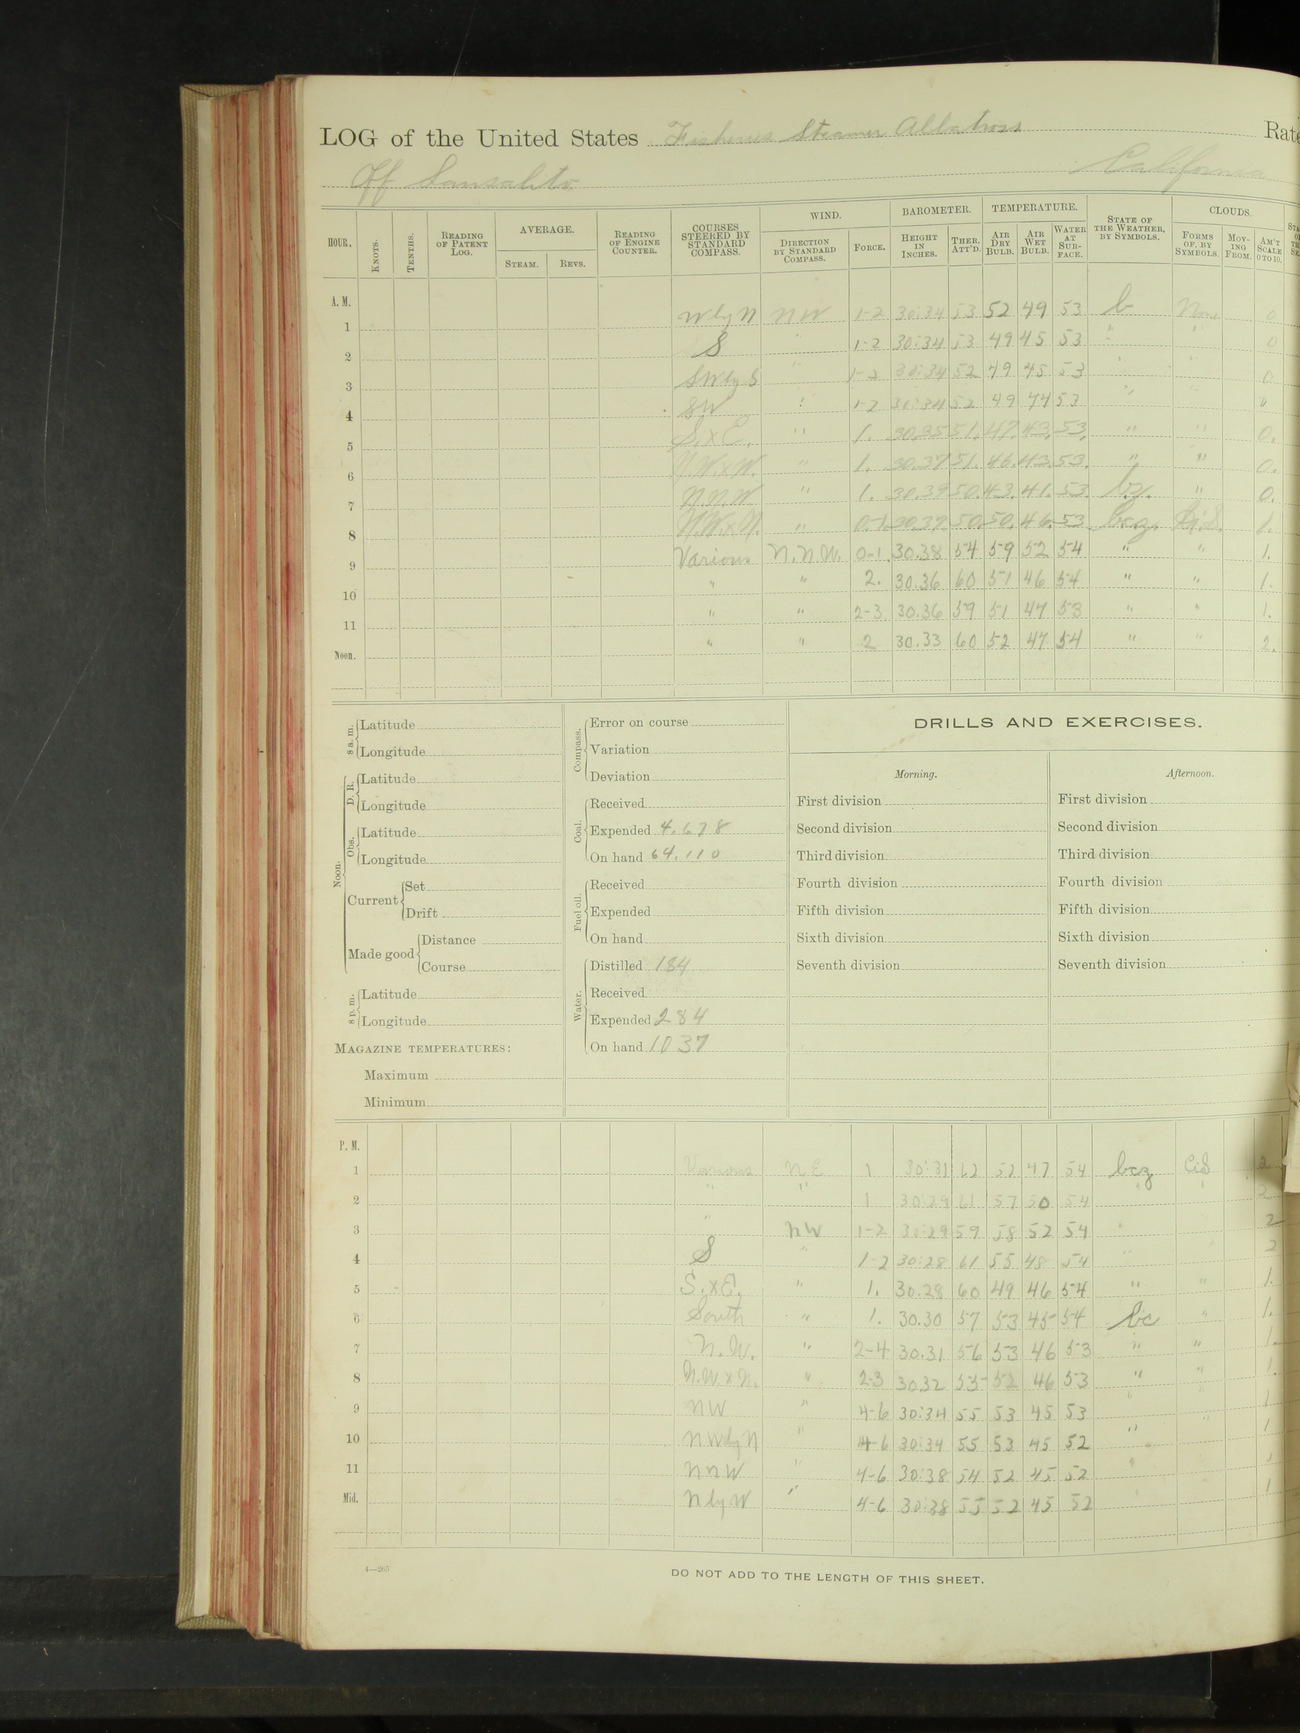 LOG of the United States Fisheries Steamer Albatross Rate
Off Sausalito California
HOUR. KNOTS. TENTHS. READING OF PATENT LOG. AVERAGE. STEAM. REVS. READING OF ENGINE COUNTER. COURSES STEERED BY STANDARD COMPASS. WIND. DIRECTION BY STANDARD COMPASS. FORCE. BAROMETER. HEIGHT IN INCHES. THER. ATT'D. TEMPERATURE. AIR DRY BULB. AIR WET BULB. WATER AT SUR-FACE. STATE OF THE WEATHER, BY SYMBOLS. CLOUDS. FORMS OF, BY SYMBOLS. MOV-ING FROM. AM'T SCALE 0 TO 10.
A. M.
1 W by N NW 1-2 30:34 53 52 49 53 b None 0
2 S " 1-2 30:34 53 49 45 53 " " 0
3 SW by S " 1-2 30:34 52 49 45 53 " " 0
4 SW " 1-2 30:34 52 49 44 53 " " 0
5 S.xE. " 1. 30.35 51. 47. 43. 53. " " 0.
6 N.W.xW. " 1. 30.37 51. 46. 43. 53. " " 0.
7 N.N.W " 1. 30.39 50. 43. 41. 53. bz. " 0.
8 N.W.xN. " 0-1. 30.39 50. 50. 46. 53 bcz. Ci.S. 1.
9 Various N.N.W. 0-1. 30.38 54 59 52 54 " " 1.
10 " " 2. 30.36 60 51 46 54 " " 1.
11 " " 2-3 30.36 59 51 47 53 " " 1.
Noon. " " 2 30.33 60 52 47 54 " " 2.
8 a.m. Latitude
Longitude
Noon. D. R. Latitude
Longitude
Obs. Latitude
Longitude
Current Set
Drift
Made good Distance
Course
8 p.m. Latitude
Longitude
MAGAZINE TEMPERATURES:
Maximum
Minimum
Compass. Error on course
Variation
Deviation
Coal. Received
Expended 4.678
On hand 64.110
Fuel oil. Received
Expended
On hand
Water. Distilled 184
Received
Expended 284
On hand 1037
DRILLS AND EXERCISES.
Morning.
First division
Second division
Third division
Fourth division
Fifth division
Sixth division
Seventh division
Afternoon.
First division
Second division
Third division
Fourth division
Fifth division
Sixth division
Seventh division
P. M.
1 Various NE 1 30:31 62 52 47 54 bcz CiS 2
2 " " 1 30:29 61 57 50 54 " " 2
3 " NW 1-2 30:29 59 58 52 54 " 2
4 S " 1-2 30:28 61 55 48 54 " " 2
5 S.xE. " 1. 30.28 60 49 46 54 " " 1.
6 South " 1. 30.30 57 53 45 54 bc " 1.
7 N.W. " 2-4 30.31 56 53 46 53 " " 1.
8 N.W.xN. " 2-3 30.32 53 52 46 53 " " 1.
9 NW " 4-6 30:34 55 53 45 53 " " 1
10 NW by N " 4-6 30:34 55 53 45 52 " 1
11 NNW " 4-6 30:38 54 52 45 52 " 1
Mid. N by W " 4-6 30:38 55 52 45 52 " 1
4—265
DO NOT ADD TO THE LENGTH OF THIS SHEET.